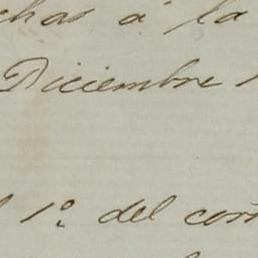 chas á la
Diciembre 1
1º del cor